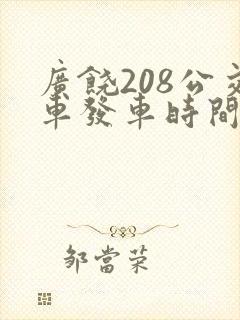 廣饒208公交
車發車時間
鄒當榮